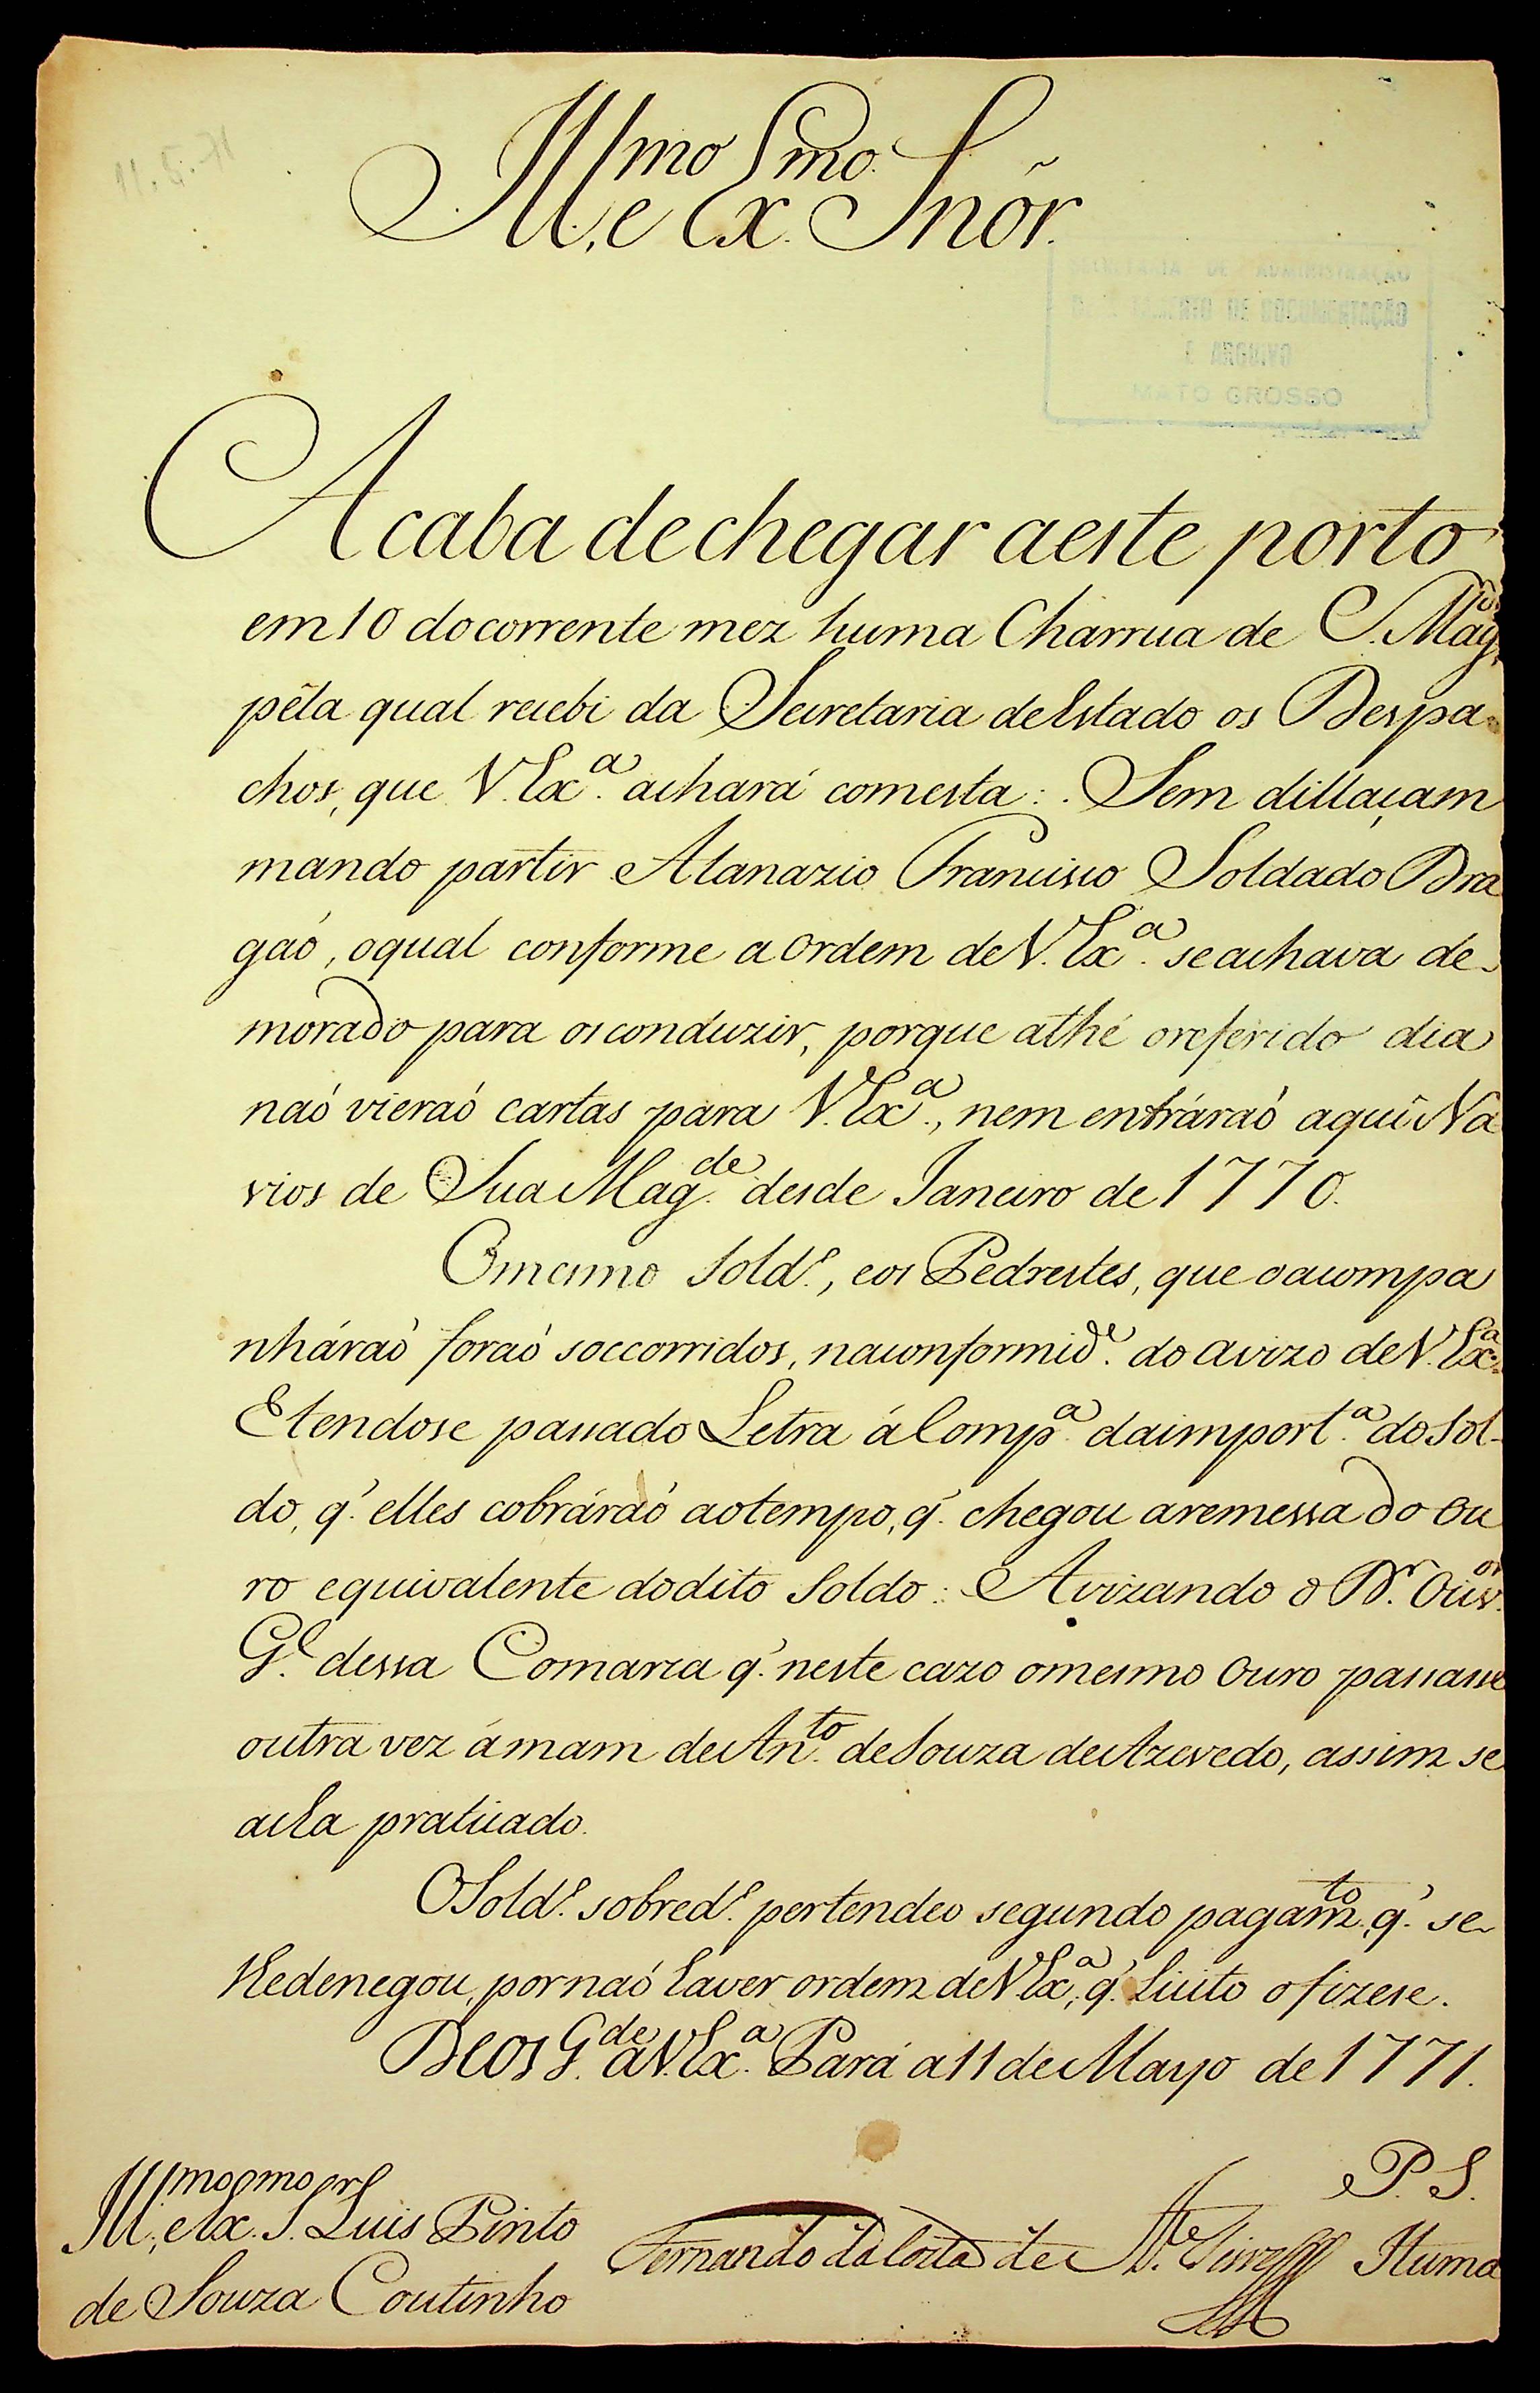 Ill.mo e Ex.mo Snõr.
SECRETARIA DE ADMINISTRAÇÃO
DE DOCUMENTAÇÃO
E ARQUIVO
MATO GROSSO
Acaba dechegar aeste porto
em 10 docorrente mez huma Charrua de S. Mag.
pêla qual recebi da Secretaria deEstado os Despa
chos, que V. Ex.a achará comesta: Sem dillaçam
mando partir Atanazio Francisco Soldado Dra
gaó, oqual conforme a ordem deV. Ex.a seachava de-
morado para osconduzir, porque athé oreferido dia
naó vieraó cartas para V. Ex.a, nem entráraó aqui Na
vios de Sua Mag.de desde Janeiro de 1770.
Omesmo Sold.o, eos Pedrestes, que oacompa
nháraó foraó soccorridos, naconformid.e do avizo deV. Ex.a
Etendose passado Letra áComp.a daimport.a doSol-
do, q' elles cobráraó aotempo, q' chegou aremessa do ou
ro equivalente dodito Soldo: Avizando o D.r Ouv.or
G.l dessa Comarca q' neste cazo omesmo ouro passasse
outra vez ámam deAn.to deSouza deAzevedo, assim se
acha praticado.
OSold.o sobred.o pertendeo segundo pagam.to, q' se-
lhedenegou, pornaó haver ordem deV. Ex.a, q' licito ofizese.
Deos G.de aV. Ex.a Pará a 11 de Mayo de 1771.
P. S.
Ill.mo e Ex.mo S.r Luis Pinto
de Souza Coutinho
Fernando da Costa de At.e Teive
Huma